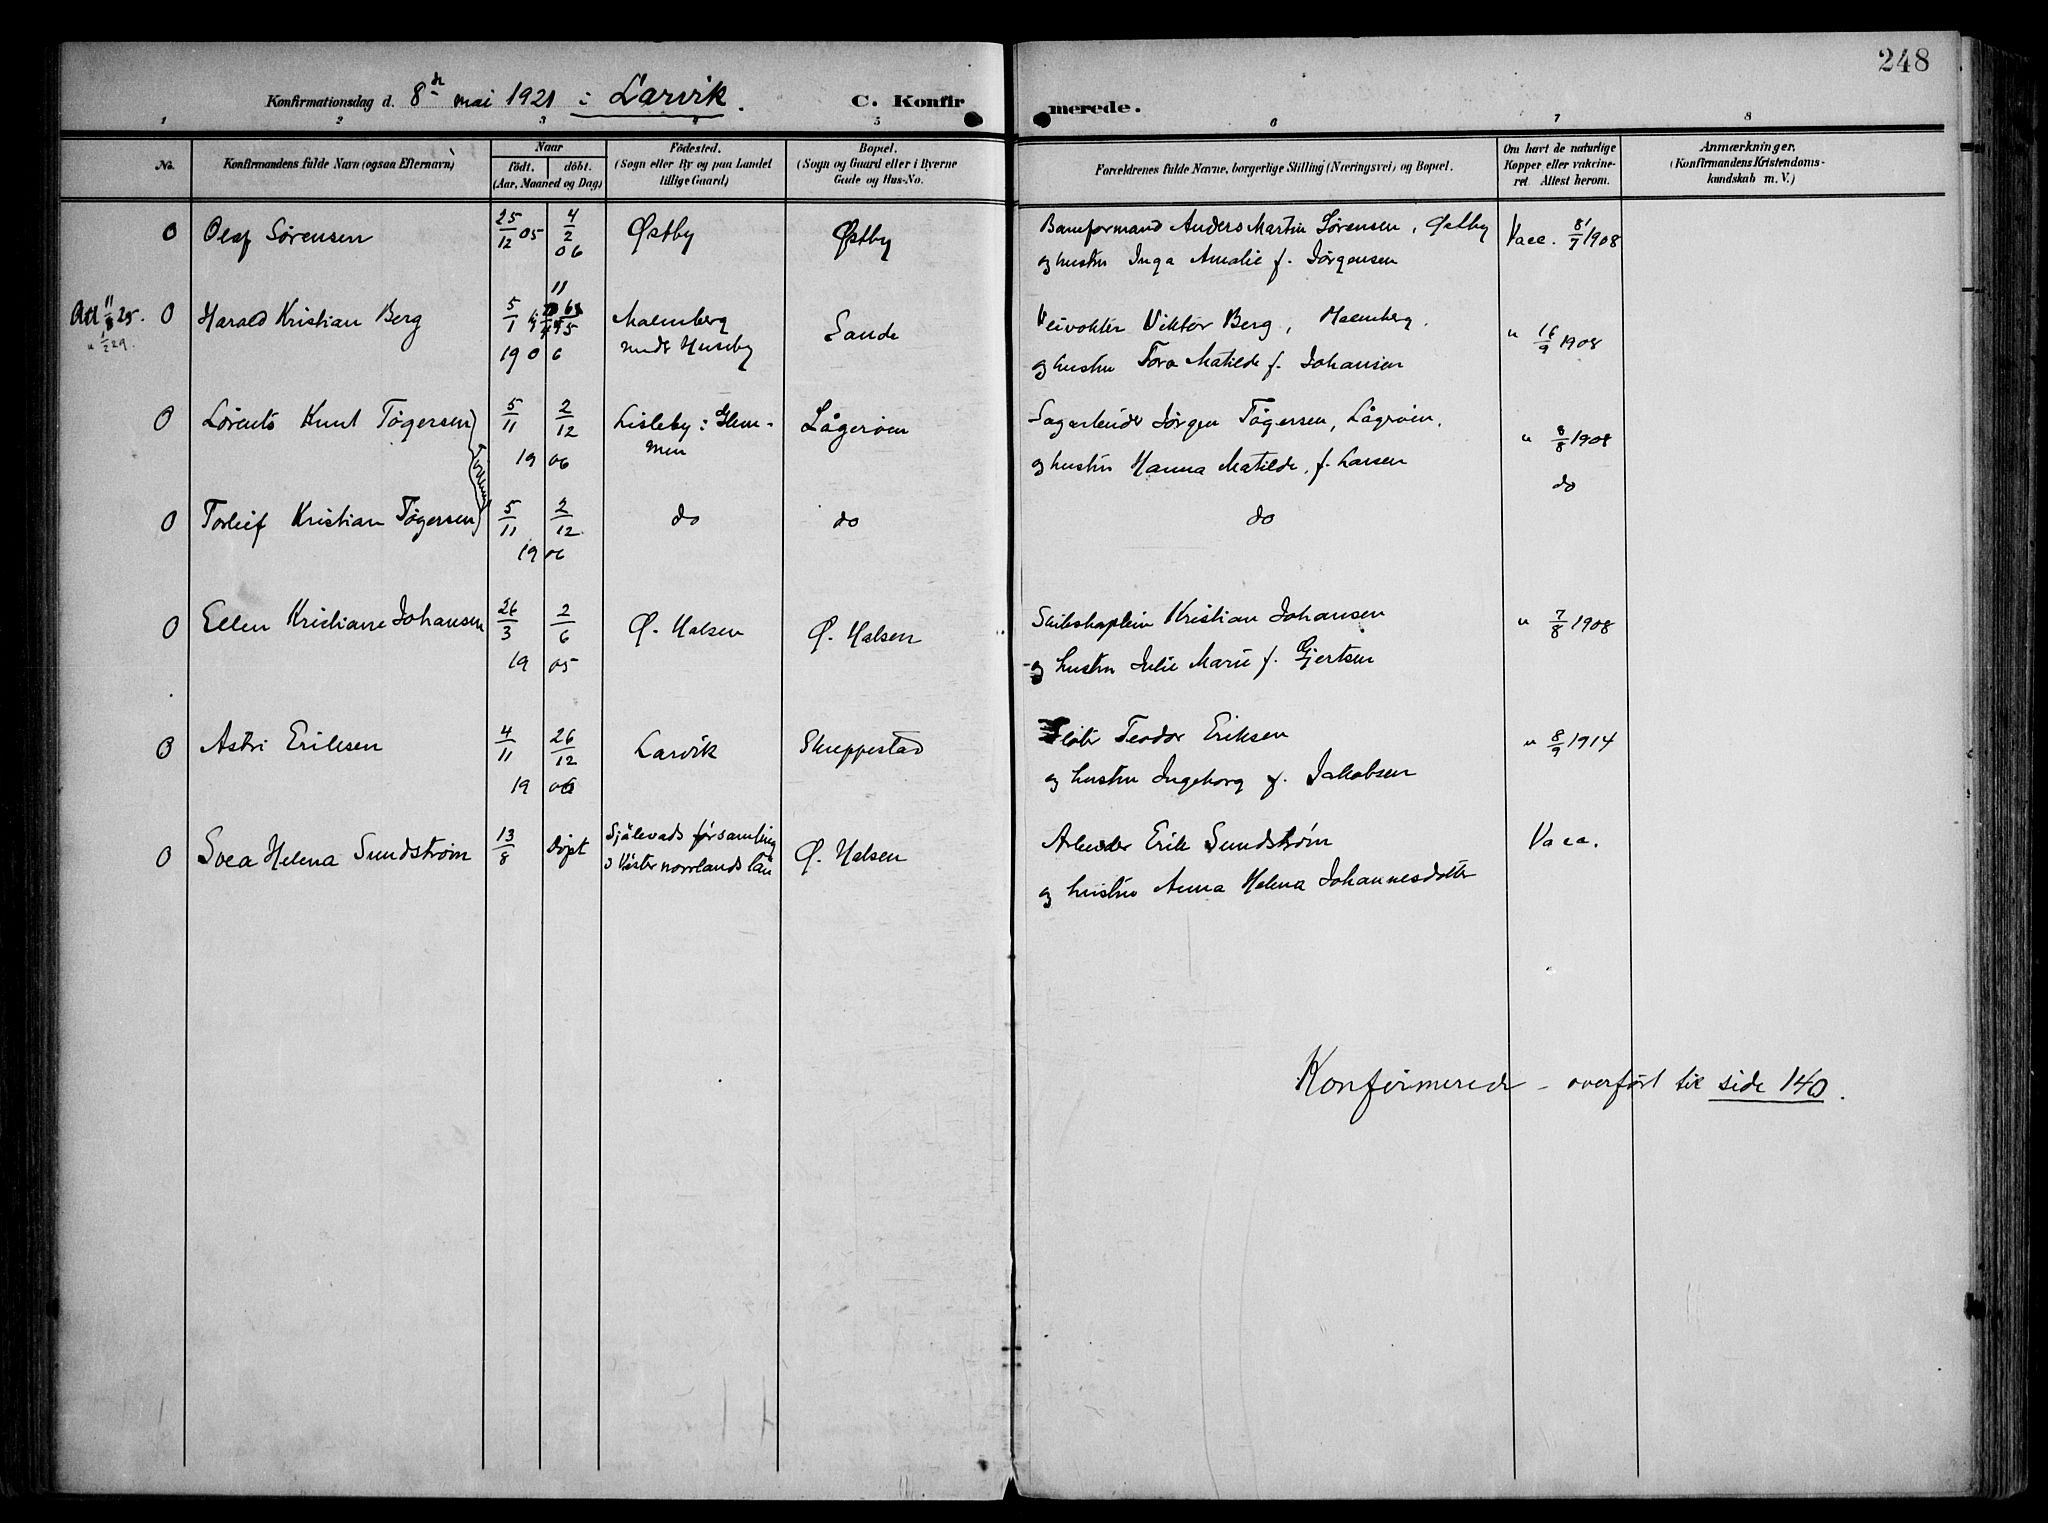 248
Konfirmationsdag d. 8de mai 1921 i Larvik. C. Konfir merede.
1 2 3 4 5 6 7 8
No.
Konfirmandens fulde Navn (ogsaa Efternavn)
Naar
födt. döbt.
(Aar, Maaned og Dag)
Födested.
(Sogn eller By og paa Landet
tillige Gaard)
Bopæl.
(Sogn og Gaard eller i Byerne
Gade og Hus-No.
Forældrenes fulde Navne, borgerlige Stilling (Næringsvei) og Bopæl.
Om havt de naturlige
Kopper eller vakcine-
ret Attest herom.
Anmærkninger.
(Konfirmandens Kristendoms-
kundskab m. V.)
0 Olaf Sörensen 25/12 05 4/2 06 Østby Østby
Baneformand Anders Martin Sørensen, Østby
og hustru Inga Amalie f. Jørgensen
Vacc. 8/7 1908
Att 11/8 25. 0 Harald Kristian Berg 5/1 1906
" 1/2 29.
Malmberg
under Huseby
Sande
Veivokter Viktor Berg, Malmberg.
og hustru Tora Matilde f. Johansen
" 16/9 1908
0 Lorents Knut Tögersen 5/11 2/12 1906
Lisleby i Glem-
men
Lågeröen
Sagarbeider Jörgen Tögersen, Lågröen.
og hustru Hanna Matilde, f. Larsen
" 8/8 1908
Tvilling
0 Torleif Kristian Tögersen 5/11 2/12 1906 do do
do
do
0 Ellen Kristiane Johansen 26/3 2/6 1905 Ø. Halsen Ø. Halsen
Skibskaptein Kristian Johansen
og hustru Julie Marie f. Gjertsen
" 7/8 1908
0 Astri Eriksen 4/11 26/12 1906 Larvik Skuppestad
Teodor Eriksen
og hustru Ingeborg f. Jakobsen
" 8/9 1914
0 Svea Helena Sundström 13/8 Döpt
Själevads församling
i Vesternorrlands län
Ø. Halsen
Arbeider Erik Sundström
og hustru Anna Helena Johannesdotter
Vacc.
Konfirmerede – overfört til side 140.